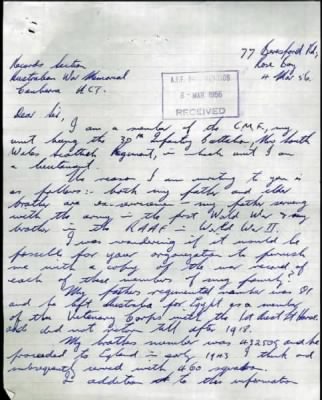 77 Beresford Rd,
Rose Bay
4 Mar 56.
Records Section
Australian War Memorial
Canberra ACT.
A.I.F.
6 - MAR 1956
RECEIVED
Dear Sir,
I am a member of the C.M.F., my
unit being the 30th Infantry Battalion, New South
Wales Scottish Regiment, in which unit I am
a lieutenant.
The reason I am writing to you is
as follows:- both my father and elder
brother are ex-servicemen - my father serving
with the army in the first World War & my
brother in the RAAF in World War II.
I was wondering if it would be
possible for your organization to furnish
me with a copy of the war records of
each of these members of my family?
My fathers regimental number was 81
and he left Australia for Egypt as a member
of the Veterinary Corps with the 1st Light Horse
and did not return till after 1918.
My brothers number was 432505 and he
proceeded to England in early 1943 I think and
subsequently served with 460 sqadron.
In addition to this information